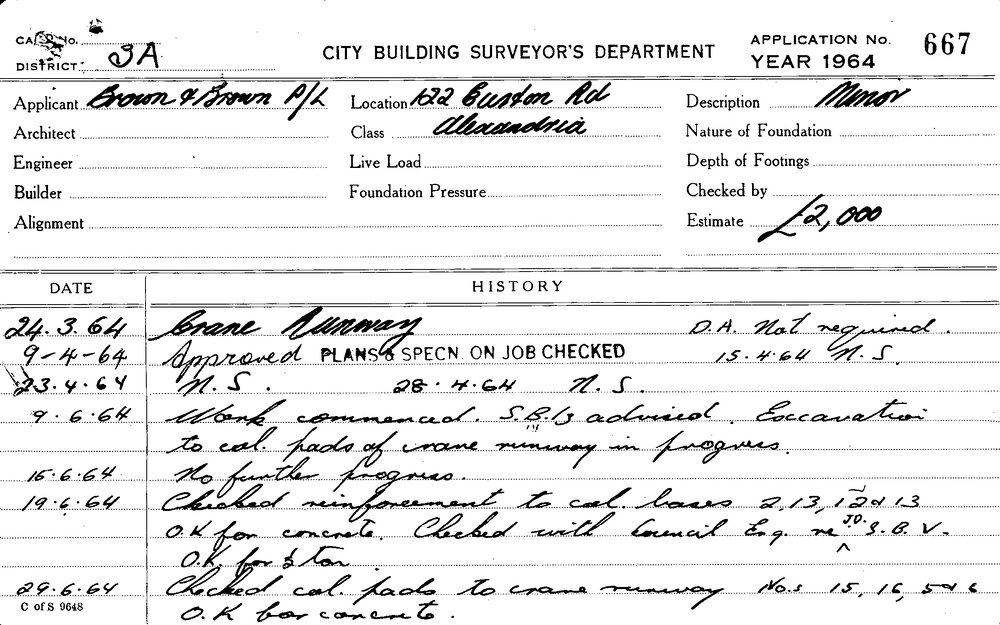 CARD No.
DISTRICT: 3A
CITY BUILDING SURVEYOR'S DEPARTMENT
APPLICATION No. 667
YEAR 1964
Applicant Brown & Brown P/L Location 122 Euston Rd Description Minor
Architect Class Alexandria Nature of Foundation
Engineer Live Load Depth of Footings
Builder Foundation Pressure Checked by
Alignment Estimate £2,000
DATE HISTORY
24.3.64 Crane Runway D.A. Not required.
9-4-64 Approved PLANS & SPECN. ON JOB CHECKED 15.4.64 N.S.
23.4.64 N.S. 28.4.64 N.S.
9.6.64 Work commenced. advised. Excavation
to col. pads of crane runway in progress.
15.6.64 No further progress.
19.6.64 Checked reinforcement to col. bases 2, 13, 12 & 13
O.K for concrete. Checked with Council Eng. re J.D. S.B.V.
O.K. for
29.6.64 Checked col. pads to crane runway Nos 15, 16, 5 & 6
C of S 9648
O.K for concrete.